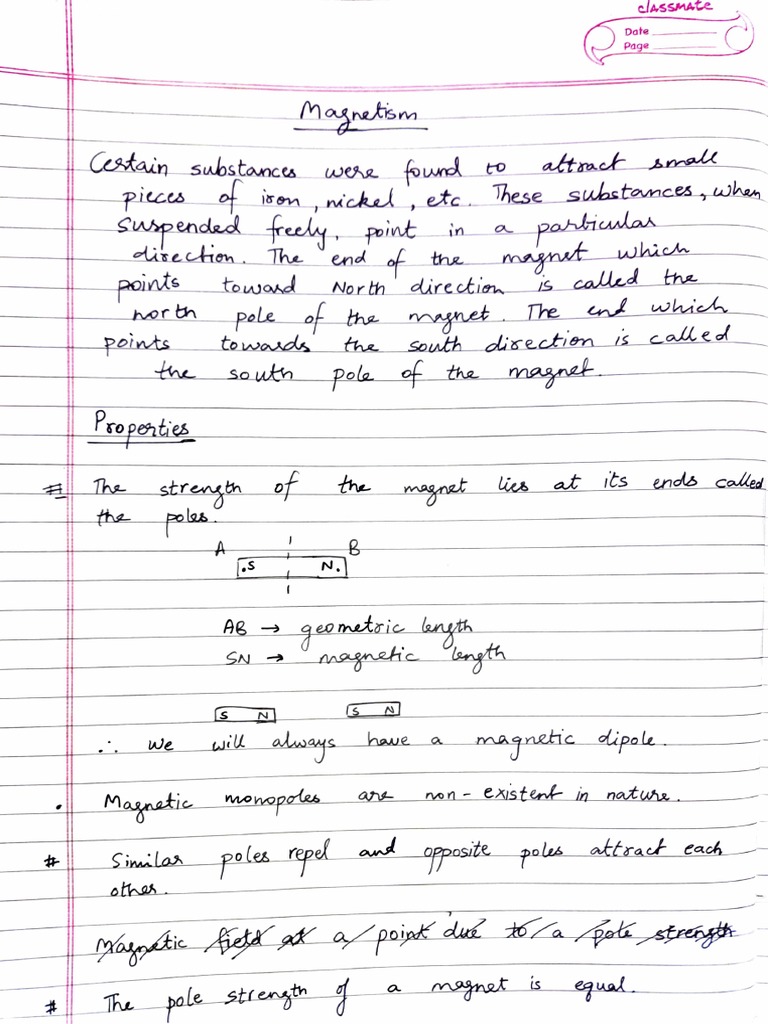 classmate
Date
Page
Magnetism
Certain substances were found to attract small
pieces of iron, nickel, etc. These substances, when
suspended freely, point in a particular
direction. The end of the magnet which
points toward North direction is called the
north pole of the magnet. The end which
points towards the south direction is called
the south pole of the magnet.
Properties
# The strength of the magnet lies at its ends called
the poles.
A B
.S N.
AB → geometric length
SN → magnetic length
S N S N
∴ we will always have a magnetic dipole.
. Magnetic monopoles are non-existent in nature.
# Similar poles repel and opposite poles attract each
other.
Magnetic field at a point due to a pole strength
# The pole strength of a magnet is equal.